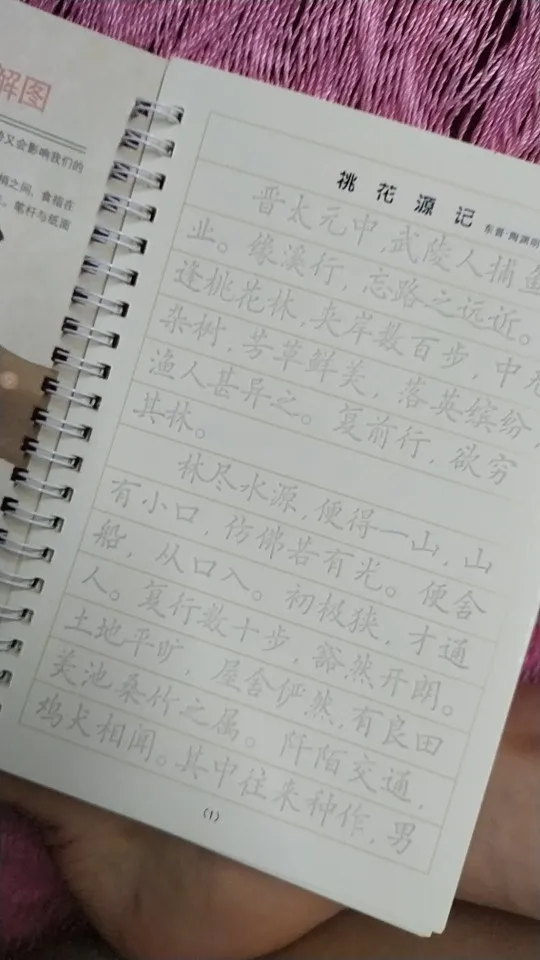 解图
又会影响我们的
稍之间，食指在
笔杆与纸面
桃花源记
东晋·陶渊明
晋太元中，武陵人捕鱼
业。缘溪行，忘路之远近。
逢桃花林，夹岸数百步，中无
杂树，芳草鲜美，落英缤纷，
渔人甚异之。复前行，欲穷
其林。
林尽水源，便得一山，山
有小口，仿佛若有光。便舍
船，从口入。初极狭，才通
人。复行数十步，豁然开朗。
土地平旷，屋舍俨然，有良田
美池桑竹之属。阡陌交通，
鸡犬相闻。其中往来种作，男
(1)